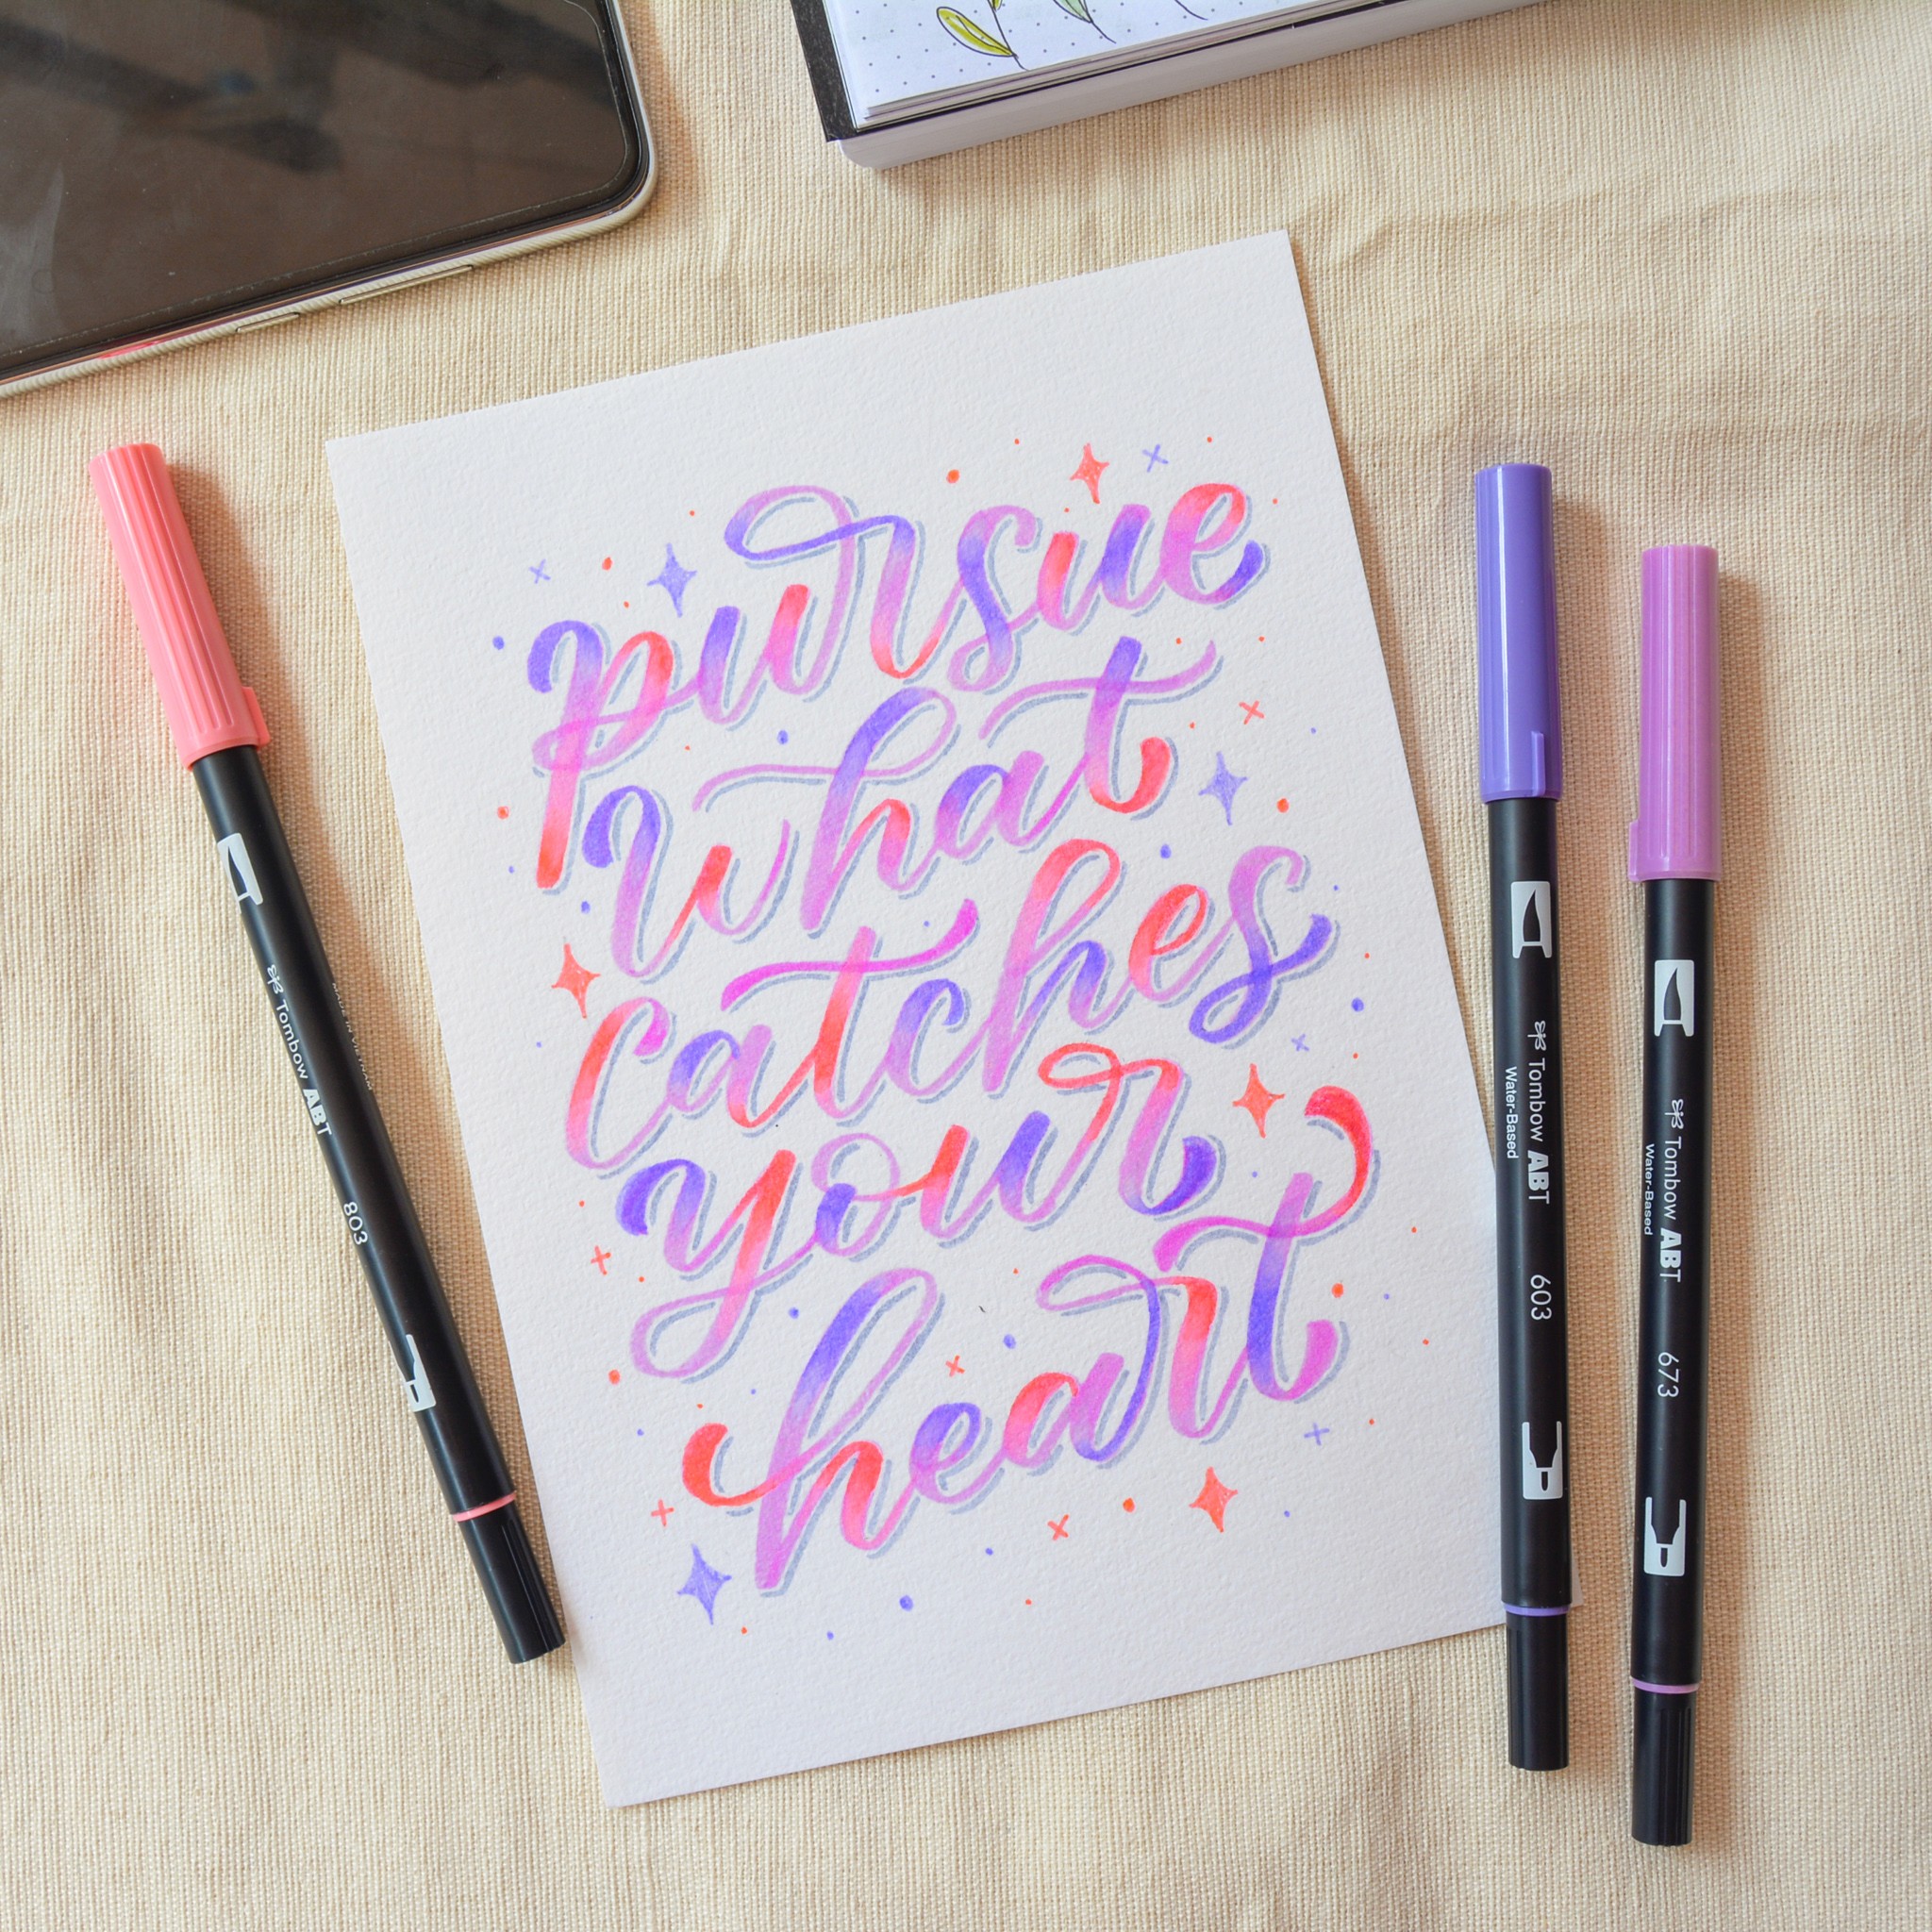 pursue
what
catches
your
heart
Tombow ABT
MADE IN VIETNAM
803
Tombow ABT
Water-Based
603
Tombow ABT
Water-Based
673